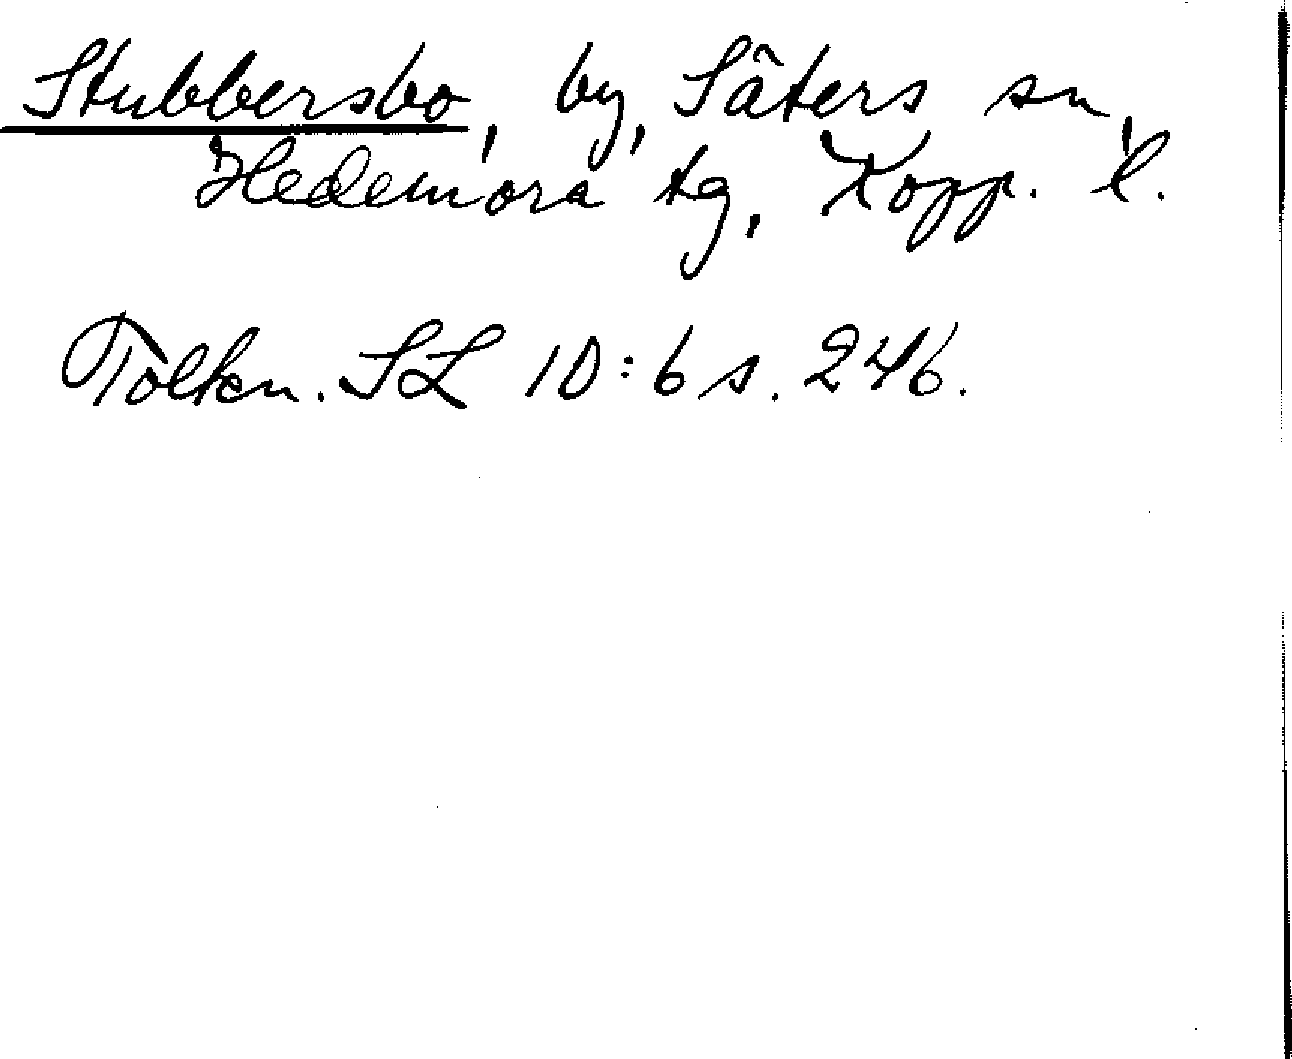 Stubbersbo, by, Säters sn,
Hedemora tg, Kopp. l.
Tolkn. SL 10:6 s. 246.